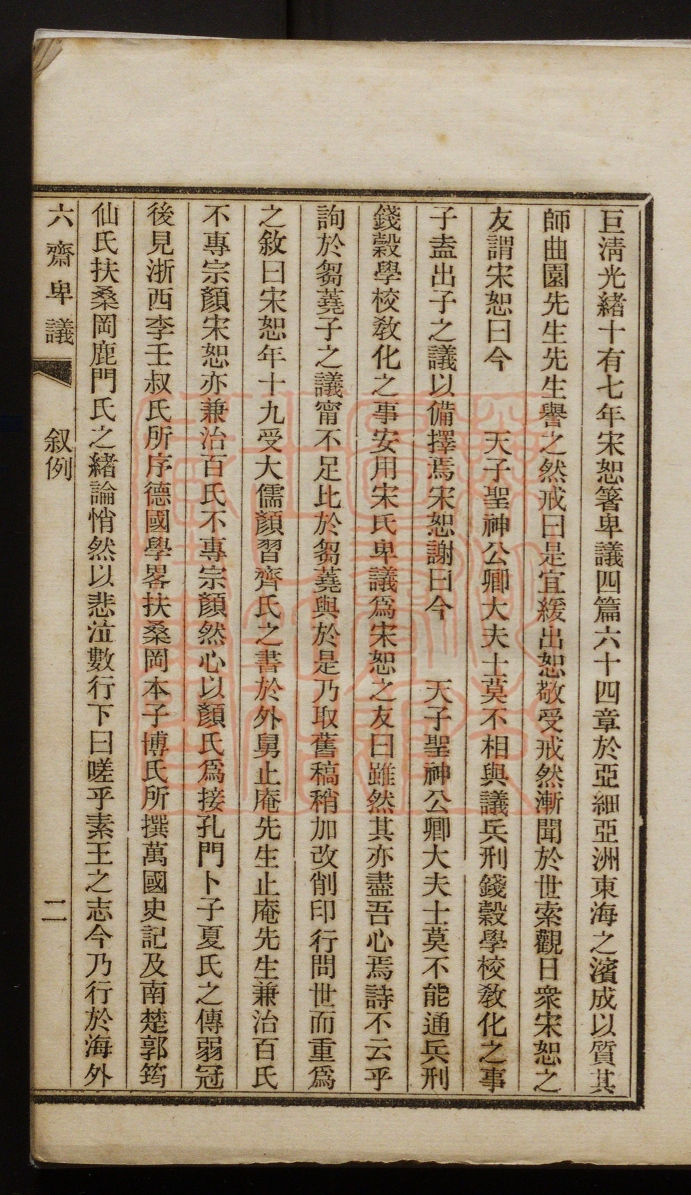 巨淸光緒十有七年宋恕箸卑議四篇六十四章於亞細亞洲東海之濱成以質其
師曲園先生先生譽之然戒曰是宜緩出恕敬受戒然漸聞於世索觀日衆宋恕之
友謂宋恕曰今　天子聖神公卿大夫士莫不相與議兵刑錢穀學校敎化之事
子盍出子之議以備擇焉宋恕謝曰今　天子聖神公卿大夫士莫不能通兵刑
錢穀學校敎化之事安用宋氏卑議爲宋恕之友曰雖然其亦盡吾心焉詩不云乎
詢於芻蕘子之議甯不足比於芻蕘與於是乃取舊稿稍加改削印行問世而重爲
之敘曰宋恕年十九受大儒顏習齊氏之書於外舅止庵先生止庵先生兼治百氏
不專宗顏宋恕亦兼治百氏不專宗顏然心以顏氏爲接孔門卜子夏氏之傳弱冠
後見浙西李壬叔氏所序德國學畧扶桑岡本子博氏所撰萬國史記及南楚郭筠
仙氏扶桑岡鹿門氏之緒論悄然以悲泣數行下曰嗟乎素王之志今乃行於海外
六齋卑議　叙例　二